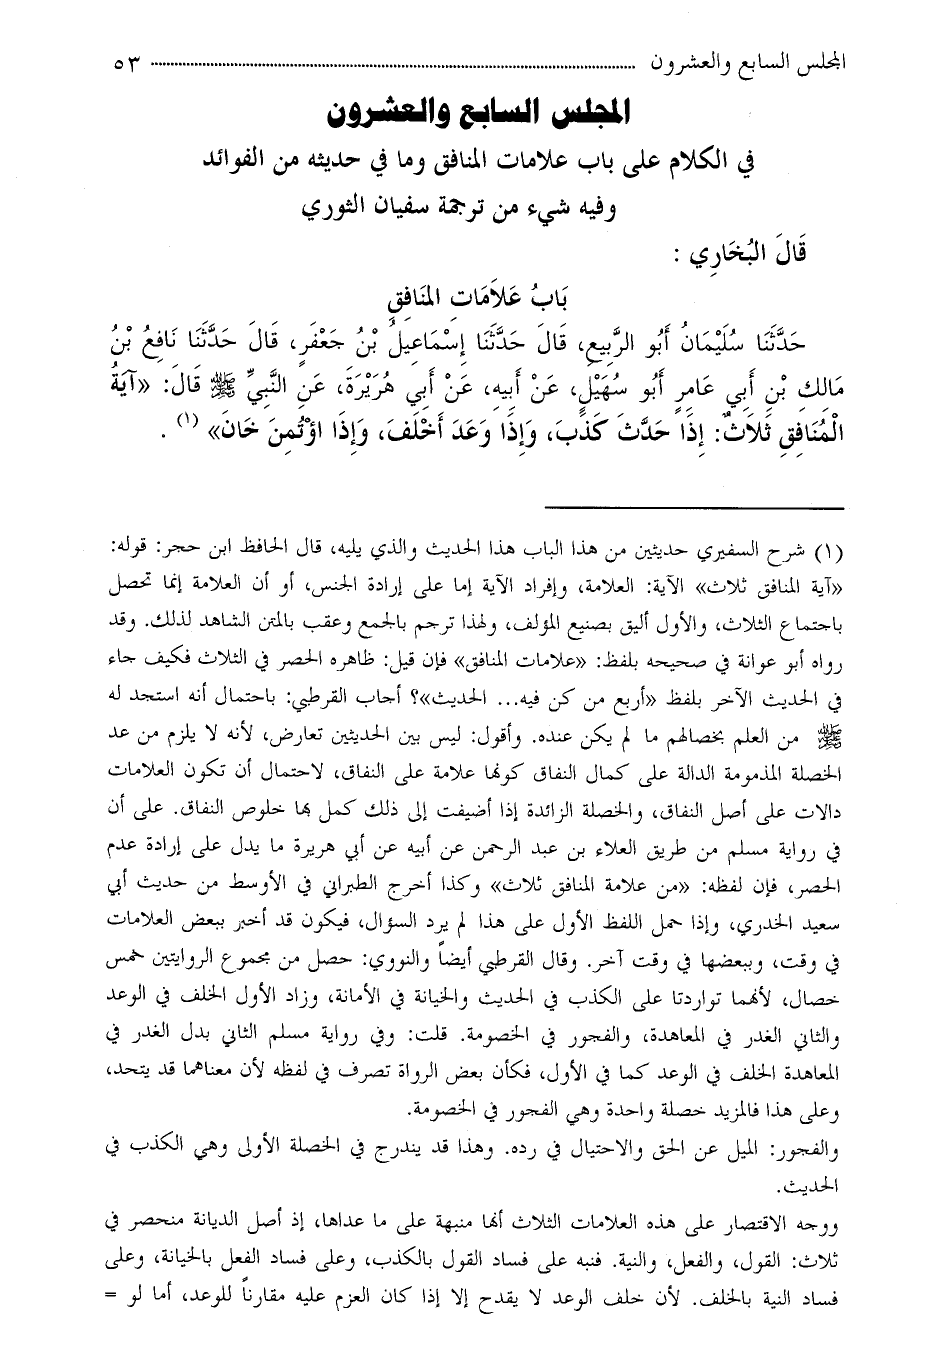 المجلس السابع والعشرون ........................ ٥٣
المجلس السابع والعشرون
في الكلام على باب علامات المنافق وما في حديثه من الفوائد
وفيه شيء من ترجمة سفيان الثوري
قَالَ البُخَارِي :
بَابُ عَلاَمَاتِ المنَافِقِ
حَدَّثَنَا سُلَيْمَانُ أَبُو الرَّبِيعِ، قَالَ حَدَّثَنَا إِسْمَاعِيلُ بْنُ جَعْفَرٍ، قَالَ حَدَّثَنَا نَافِعُ بْنُ
مَالِكِ بْنِ أَبِي عَامِرٍ أَبُو سُهَيْلٍ، عَنْ أَبِيهِ، عَنْ أَبِي هُرَيْرَةَ، عَنِ النَّبِيِّ ﷺ قَالَ: «آيَةُ
الْمُنَافِقِ ثَلاَثٌ: إِذَا حَدَّثَ كَذَبَ، وَإِذَا وَعَدَ أَخْلَفَ، وَإِذَا اؤْتُمِنَ خَانَ» (١) .
(١) شرح السفيري حديثين من هذا الباب هذا الحديث والذي يليه، قال الحافظ ابن حجر: قوله:
«آية المنافق ثلاث» الآية: العلامة، وإفراد الآية إما على إرادة الجنس، أو أن العلامة إنما تحصل
باجتماع الثلاث، والأول أليق بصنيع المؤلف، ولهذا ترجم بالجمع وعقب بالمتن الشاهد لذلك. وقد
رواه أبو عوانة في صحيحه بلفظ: «علامات المنافق» فإن قيل: ظاهره الحصر في الثلاث فكيف جاء
في الحديث الآخر بلفظ «أربع من كن فيه... الحديث»؟ أجاب القرطبي: باحتمال أنه استجد له
ﷺ من العلم بخصالهم ما لم يكن عنده. وأقول: ليس بين الحديثين تعارض، لأنه لا يلزم من عد
الخصلة المذمومة الدالة على كمال النفاق كونها علامة على النفاق، لاحتمال أن تكون العلامات
دالات على أصل النفاق، والخصلة الزائدة إذا أضيفت إلى ذلك كمل بها خلوص النفاق. على أن
في رواية مسلم من طريق العلاء بن عبد الرحمن عن أبيه عن أبي هريرة ما يدل على إرادة عدم
الحصر، فإن لفظه: «من علامة المنافق ثلاث» وكذا أخرج الطبراني في الأوسط من حديث أبي
سعيد الخدري، وإذا حمل اللفظ الأول على هذا لم يرد السؤال، فيكون قد أخبر ببعض العلامات
في وقت، وببعضها في وقت آخر. وقال القرطبي أيضاً والنووي: حصل من مجموع الروايتين خمس
خصال، لأنهما تواردتا على الكذب في الحديث والخيانة في الأمانة، وزاد الأول الخلف في الوعد
والثاني الغدر في المعاهدة، والفجور في الخصومة. قلت: وفي رواية مسلم الثاني بدل الغدر في
المعاهدة الخلف في الوعد كما في الأول، فكأن بعض الرواة تصرف في لفظه لأن معناهما قد يتحد،
وعلى هذا فالمزيد خصلة واحدة وهي الفجور في الخصومة.
والفجور: الميل عن الحق والاحتيال في رده. وهذا قد يندرج في الخصلة الأولى وهي الكذب في
الحديث.
ووجه الاقتصار على هذه العلامات الثلاث أنها منبهة على ما عداها، إذ أصل الديانة منحصر في
ثلاث: القول، والفعل، والنية. فنبه على فساد القول بالكذب، وعلى فساد الفعل بالخيانة، وعلى
فساد النية بالخلف. لأن خلف الوعد لا يقدح إلا إذا كان العزم عليه مقارناً للوعد، أما لو =